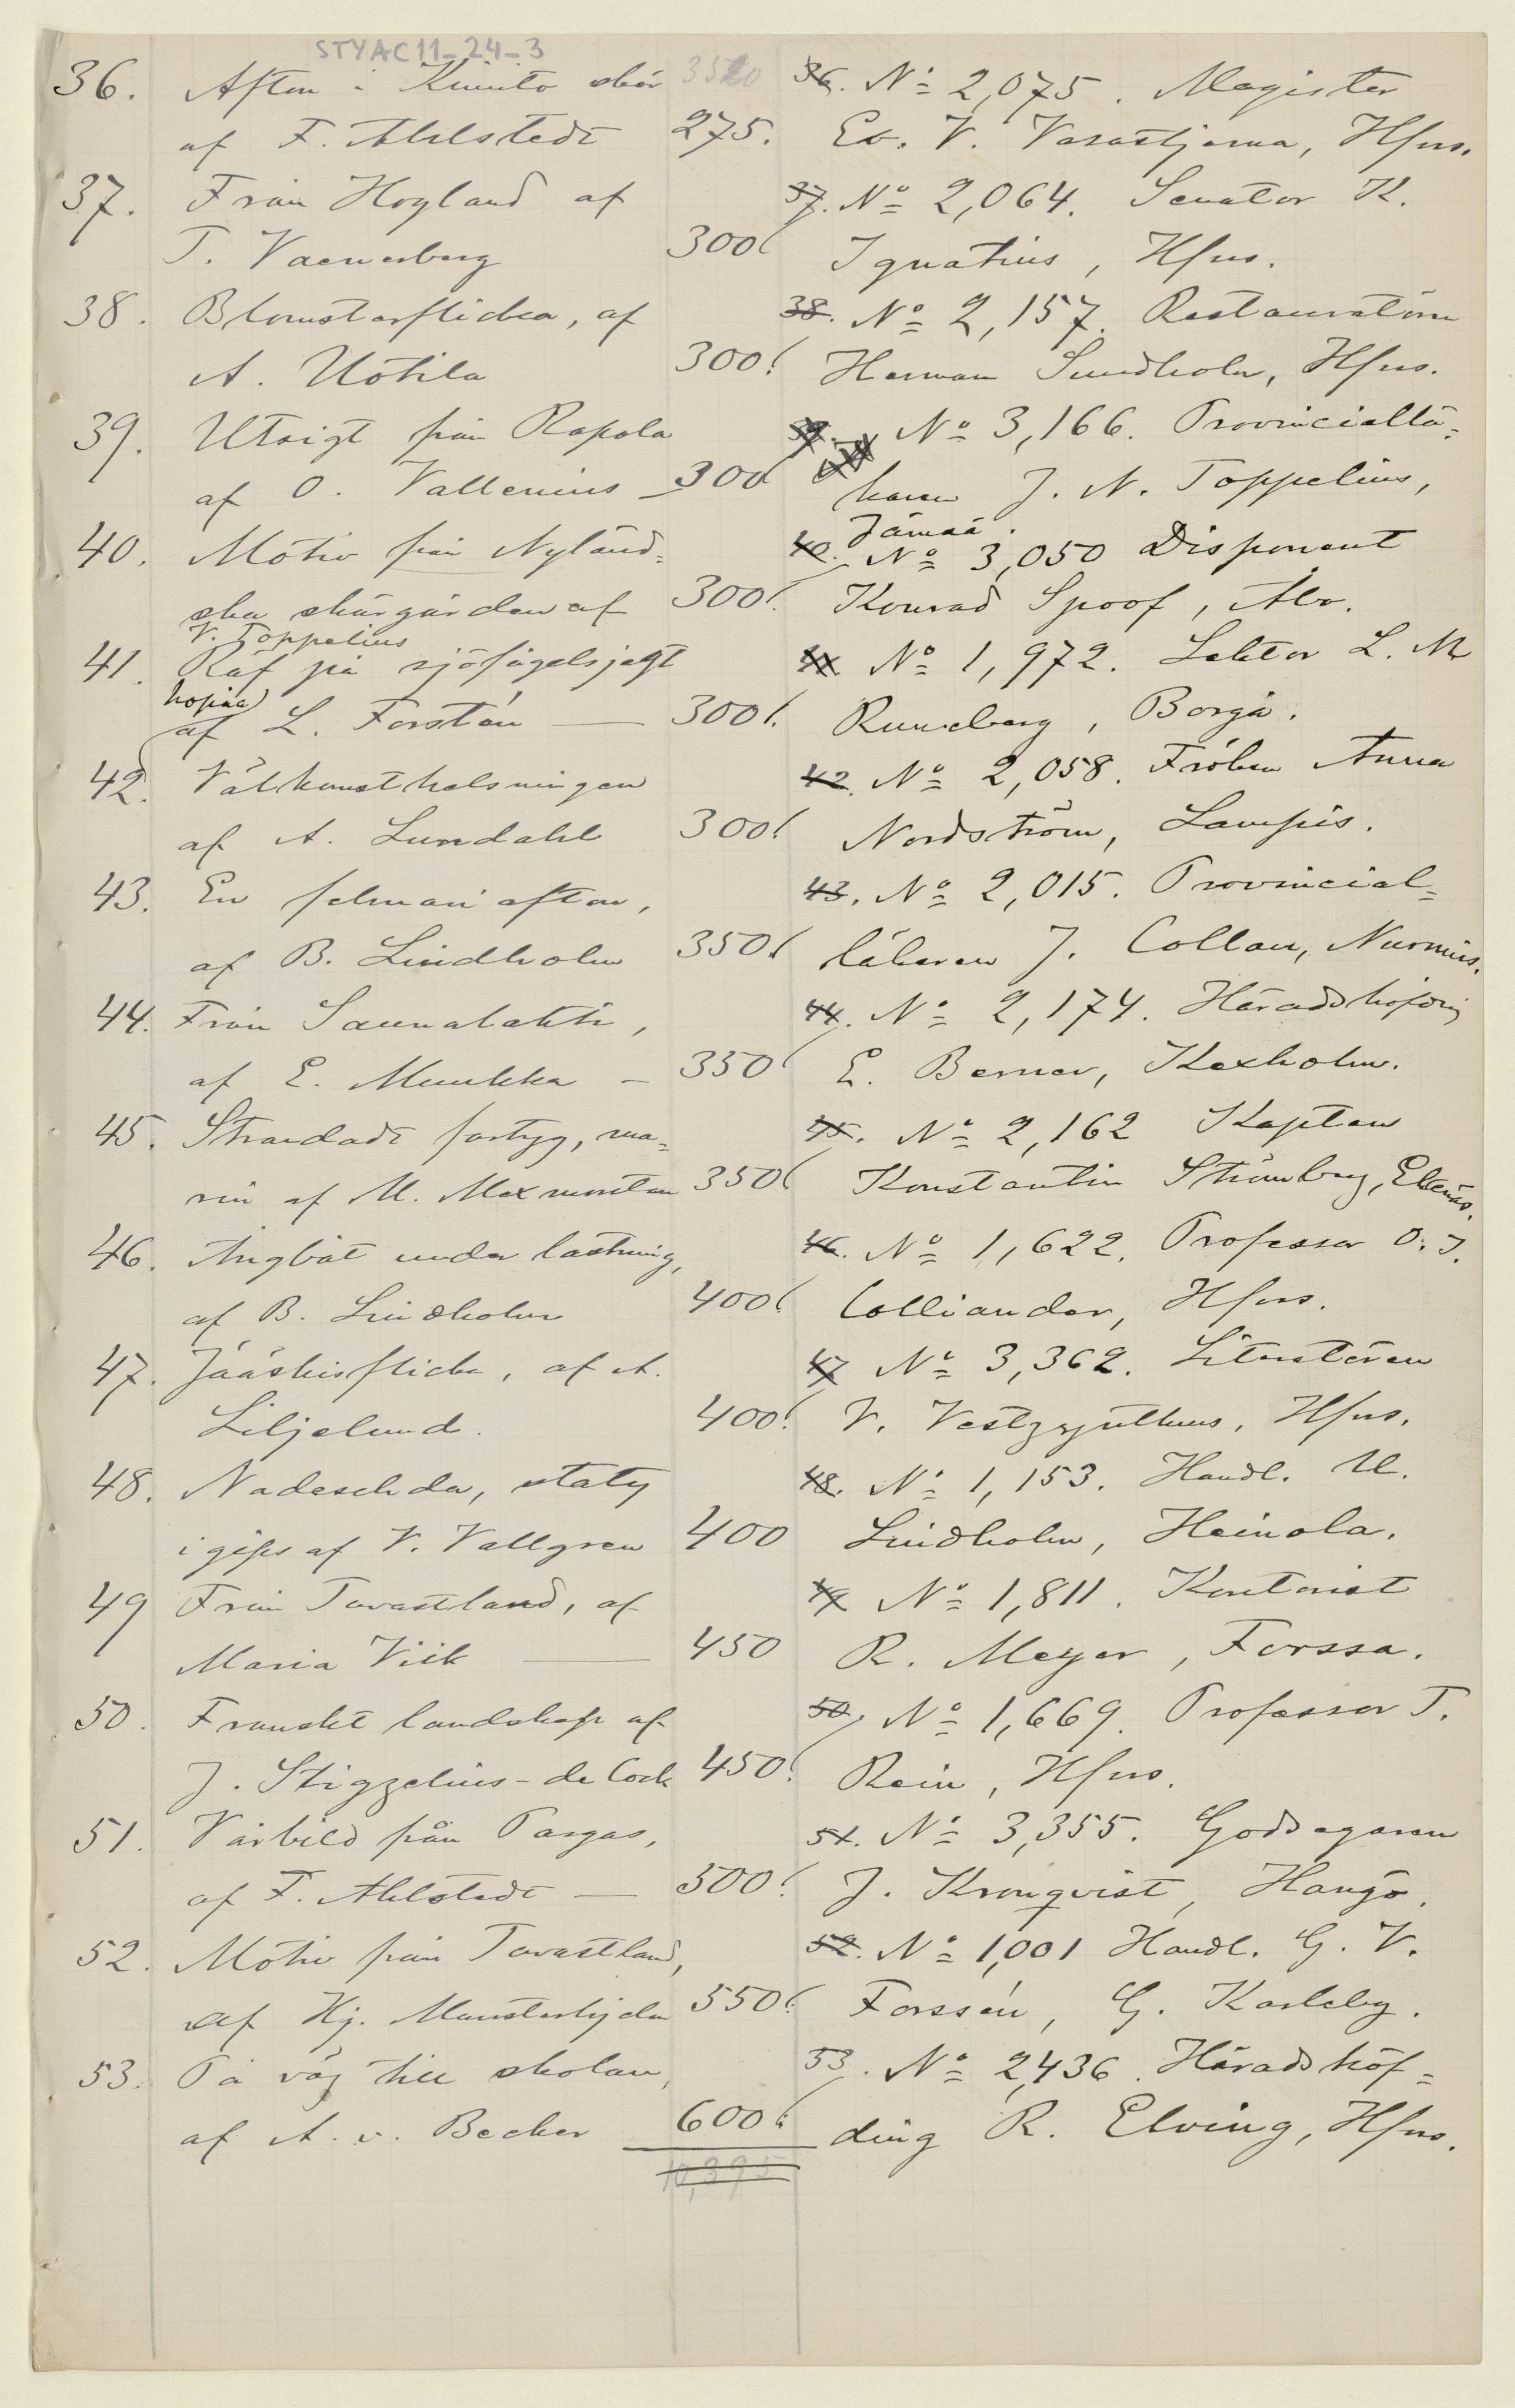 STYAC11_24_3
36. Afton i Kimito skär 3520 36. No 2,075. Magister
af F. Ahlstedt 275. Ev. V. Vasastjerna, Hfors.
37. Från Hogland af 37. No 2,064. Senator K.
T. Vaenerberg 300 Ignatius, Hfors.
38. Blomsterflicka, af 38. No 2,157. Restauratören
A. Uotila 300 Herman Sundholm, Hfors.
39. Utsigt från Rapola 39. No 3,166. Provinciallä=
af O. Vallenius — 300 karen J. N. Toppelius,
Jämsä.
40. Motiv från Nyländ= 40. No 3,050 Disponent
ska skärgården af 300 Konrad Spoof, Åbo.
V. Toppelius
41. Räf på sjöfågelsjagt 41. No 1,972. Lektor L. M
kopia
af L. Forstén — 300. Runeberg, Borgå.
42. Välkomsthelsningen 42. No 2,058. Fröken Anna
af A. Lundahl 300 Nordström, Lampis.
43. En februari afton, 43. No 2,015. Provincial=
af B. Lindholm 350 läkaren J. Collan, Nurmis.
44. Från Saunalahti, 44. No 2,174. Häradshöfding
af E. Muukka — 350 E. Berner, Kexholm.
45. Strandadt fartyg, ma= 45. No 2,162 Kapten
rin af M. Maxmontan 350 Konstantin Strömberg, Ekenäs.
46. Ångbåt under lastning, 46. No 1,622. Professor O. I.
af B. Lindholm 400 Colliander, Hfors.
47. Jääskisflicka, af A. 47 No 3,362. Literatören
Liljelund. 400 V. Vestzynthius, Hfors.
48. Nadeschda, staty 48. No 1,153. Handl. U.
i gips af V. Vallgren 400 Lindholm, Heinola.
49 Från Tavastland, af 49 No 1,811. Kontorist
Maria Viik — 450 R. Meyer, Forssa.
50. Franskt landskap af 50. No 1,669. Professor T.
J. Stigzelius-de Cock 450 Rein, Hfors.
51. Vårbild från Pargas, 51. No 3,355. Godsegaren
af F. Ahlstedt — 500 J. Kronqvist, Hangö.
52. Motiv från Tavastland, 52. No 1,001 Handl. G. V.
af Hj. Munsterhjelm 550 Forssén, G. Karleby.
53. På väg till skolan, 53. No 2,436. Häradshöf=
af A. v. Becker 600 ding R. Elving, Hfors.
10,395